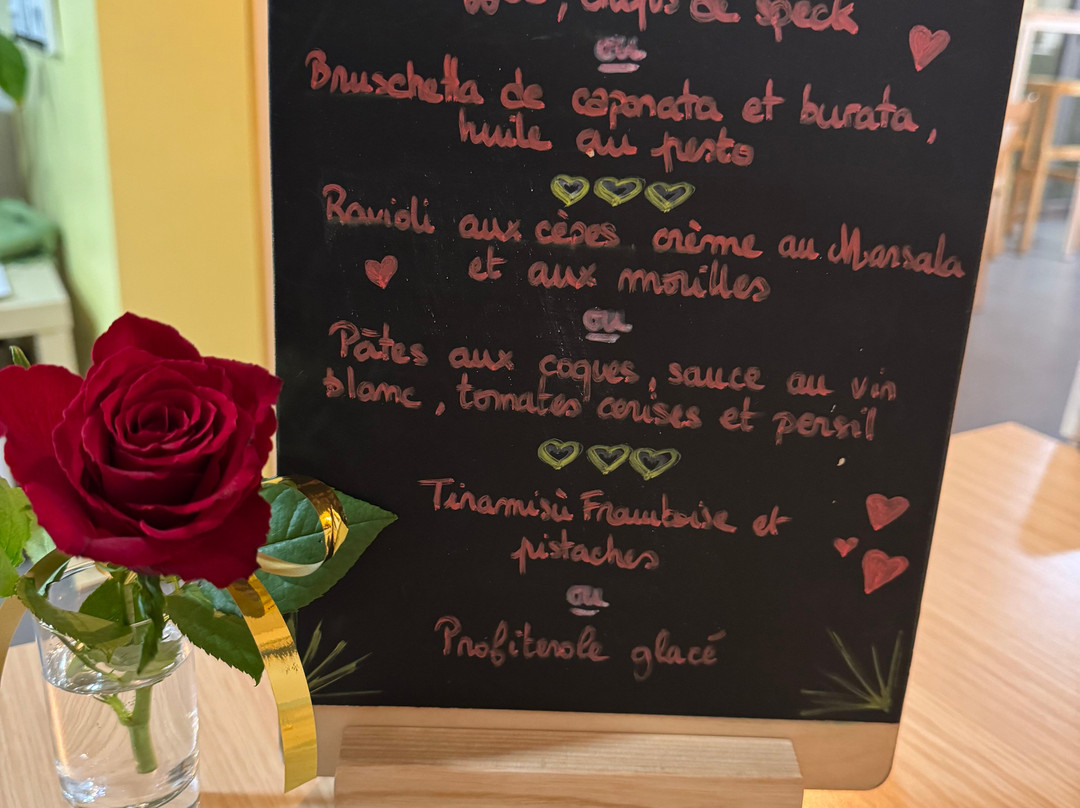 de speck
ou
Bruschetta de caponata et burata,
huile au pesto
Ravioli aux cèpes crème au Marsala
et aux morilles
ou
Pâtes aux coques, sauce au vin
blanc, tomates cerises et persil
Tiramisù Framboise et
pistaches
ou
Profiterole glacé